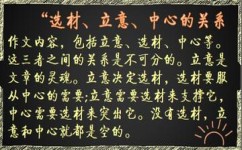 “选材、立意、中心的关系
作文内容，包括立意、选材、中心等。
这三者之间的关系是不可分的。立意是
文章的灵魂。立意决定选材，选材要服
从中心的需要；立意需要选材来支撑它，
中心需要选材来突出它。没有选材，立
意和中心就都是空的。